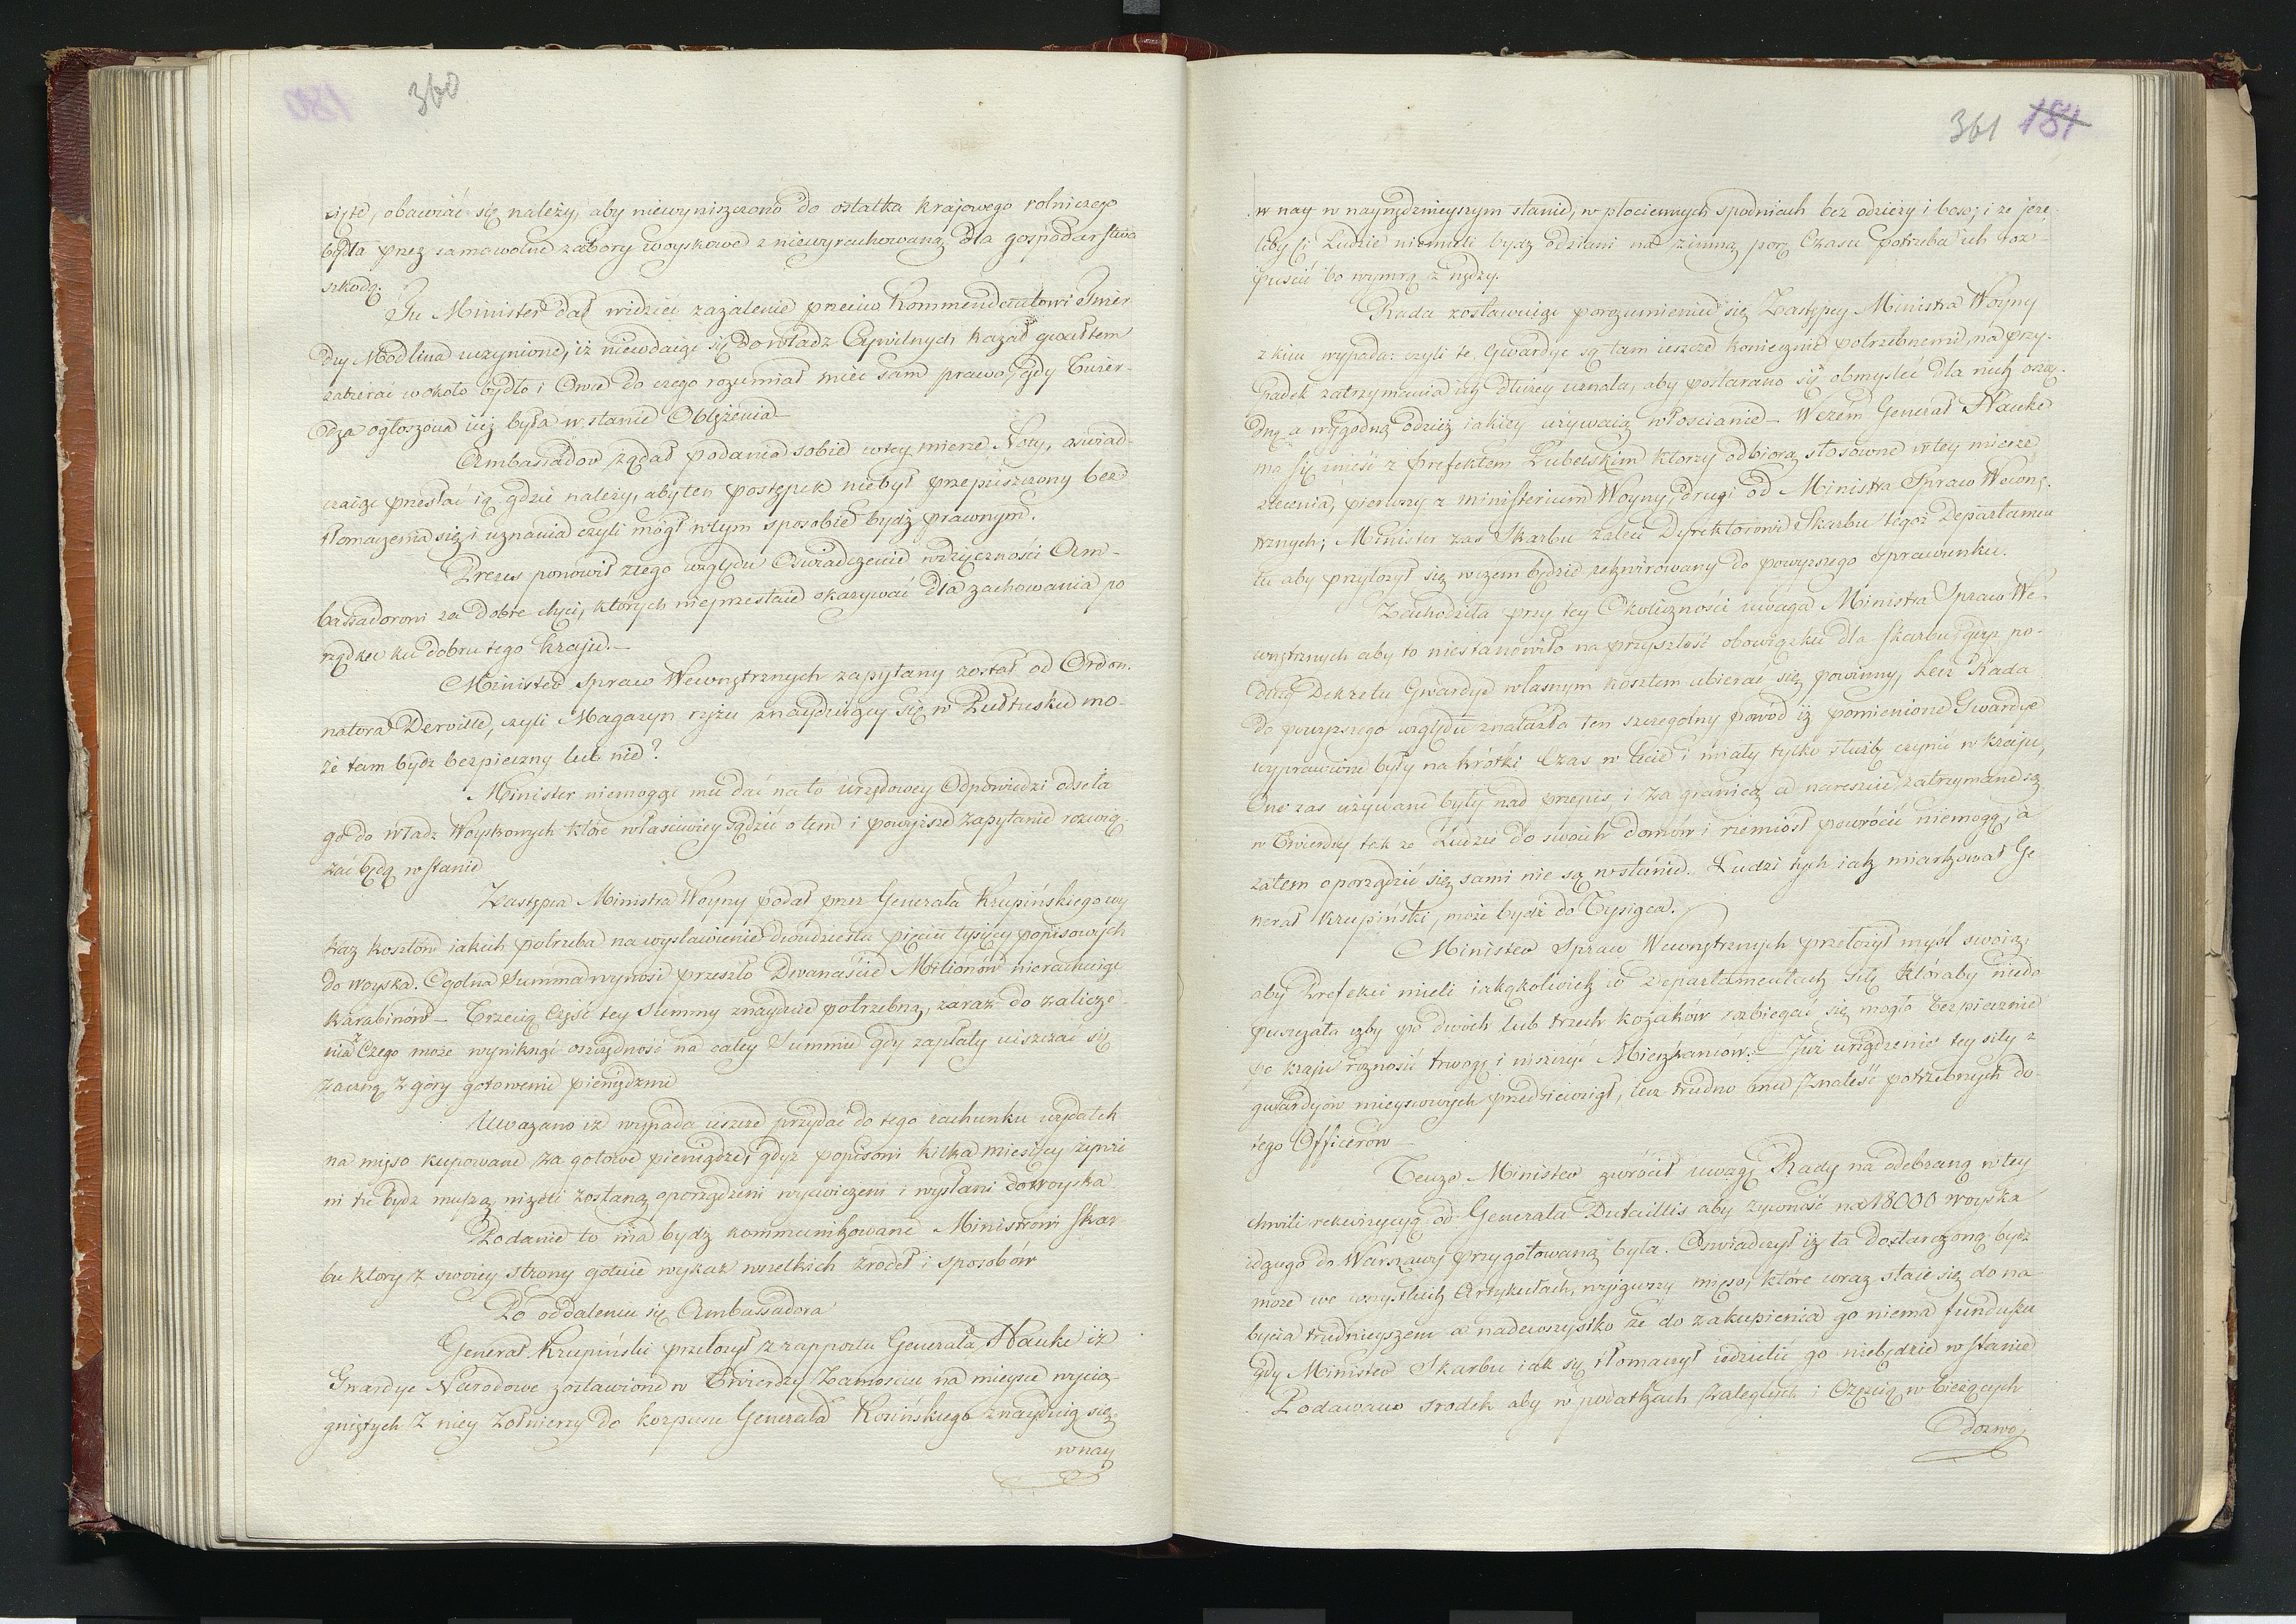 360
siętė, obawiać się należy, aby niewyniszczono do ostatka krajowego rolniczego
bydła przez samowolne zabory woyskowe z niewyrachowaną dla gospodarstwa
szkodą.
Tu Minister dał widzieć zażalenie przeciw Kommendantowi Twier
dzy Modlina uczynione, iż niewdaiąc się do władz Cywilnych kazał gwałtem
zabierać wokoło bydło i Owce do czego rozumiał mieć sam prawo, gdy Twier-
dza ogłoszona iuż była w stanie Oblężenia
Ambassador żądał podania sobie w tey mierze Noty, oświad-
czaiąc przesłać ią gdzie należy, aby ten postępek niebył przepuszczony bez
tłomaczenia się i uznania czyli mógł w tym sposobie bydź prawnym.
Prezes ponowił z tego względu Oświadczenie wdzięczności Am-
bassadorowi za dobre chęci, których nieprzestaie okazywać dla zachowania po
rządku ku dobru tego Kraju.
Minister Spraw Wewnętrznych zapytany został od Ordon-
natora Derville, czyli Magazyn ryżu znayduiący się w Pułtusku mo-
że tam bydź bezpieczny lub nie?
Minister niemogąc mu dać na to urzędowey Odpowiedzi odseła
go do władz Woyskowych które właściwiey sądzić o tem i powyższe zapytanie rozwią-
zać będą w stanie
Zastępca Ministra Woyny podał przez Generała Krupińskiego wy
kaz kosztów iakich potrzeba na wystawienie dwudziestu pięciu tysięcy popisowych
do woyska. Ogolna Summa wynosi przeszło Dwanaście Milionów nierachuiąc
Karabinów – Trzecią Część tey Summy znayduie potrzebną, zaraz do zalicze-
nia z Czego może wyniknąć oszczędność na całey Summie gdy zapłaty uiszczać się
zaczną z góry gotowemi pieniędzmi
Uważano iż wypada ieszcze przydać do tego rachunku wydatek
na mięso kupowane za gotowe pieniądze, gdyż popisowi kilka miesięcy żywie
ni tu bydź muszą, niżeli zostaną oporządzeni wyćwiczeni i wysłani do woyska
Podanie to ma bydź kommunikowane Ministrowi Skar-
bu który z swoiey strony gotuie wykaz wszelkich źródeł i sposobów
Po oddaleniu się Ambassadora
Generał Krupiński przełożył z rapportu Generała Hauke iż
Gwardye Narodowe zostawione w Twierdzy Zamościu na mieysce wycią-
gniętych z niey Żołnierzy do korpusu Generała Kosińskiego znayduią się
w nay
361 181
w nay w naynędznieyszym stanie, w płóciennych spodniach bez odzieży i boso; i że jeże-
liby ci Ludzie niemieli bydź odziani na zimną porę Czasu potrzeba ich roz-
puścić bo wymrą z nędzy.
Rada zostawuiąc porozumienie się Zastępcy Ministra Woyny
z kim wypada: czyli te Gwardye są tam ieszcze koniecznie potrzebnemi, na przy-
padek zatrzymania ich dłużey uznała, aby postarano się obmyśleć dla nich oszczę-
dną a wygodną odzież iakiey używaią włościanie – W czem Generał Hauke
ma się znieść z Prefektem Lubelskim którzy odbiorą stosowne w tey mierze
zlecenia, pierwszy z ministerium Woyny, drugi od Ministra Spraw Wewnę-
trznych; Minister zaś Skarbu zaleci Dyrektorowi Skarbu tegoż Departamen
tu aby przyłożył się w czem będzie rekwirowany do powyższego sprawunku.
Zachodziła przy tey Okoliczności uwaga Ministra Spraw We-
wnętrznych aby to niestanowiło na przyszłość obowiązku dla Skarbu, gdyż po-
dług Dekretu Gwardye własnym kosztem ubierać się powinny, Lecz Rada
do powyższego względu znalazła ten szczególny powód iż pomienione Gwardye
wyprawione były na krótki Czas w lecie i miały tylko służbę czynić w kraju,
One zaś używane były nad przepis, i za granicą a nareszcie zatrzymane są
w Twierdzy tak że Ludzie do swoich domów i rzemiosł powrócić niemogą, a
zatem oporządzić się sami nie są w stanie. Ludzi tych iak miarkował Ge-
nerał Krupiński, może bydź do Tysiąca.
Minister Spraw Wewnętrznych przełożył myśl swoią,
aby Prefekci mieli iakąkolwiek w Departamentach siłę któraby niedo
puszczała żeby po dwóch lub trzech kozaków rozbiegać się mogło bezpiecznie
po kraju roznosić trwogę i niszczyć Mieszkańców. – Już urządzenie tey siły z
gwardyów mieyscowych przedsiewziął, lecz trudno mu znaleść potrzebnych do-
tego Officerów
Tenże Minister zwrócił uwagę Rady na odebraną w tey
chwili rekwizycyą od Generała Dutaillis aby żywność na 18000 woyska
idącego do Warszawy przygotowaną była. Oświadczył iż ta dostarczoną bydź
może we wszystkich Artykułach, wyiąwszy mięso, które coraz staie się do na
bycia trudnieyszem a nadewszystko że do zakupienia go niema funduszu
gdy Minister Skarbu iak się tłomaczył udzielić go niebędzie w stanie
Podawano srodek aby w podatkach zaległych i Częścią w bieżących
dozwo